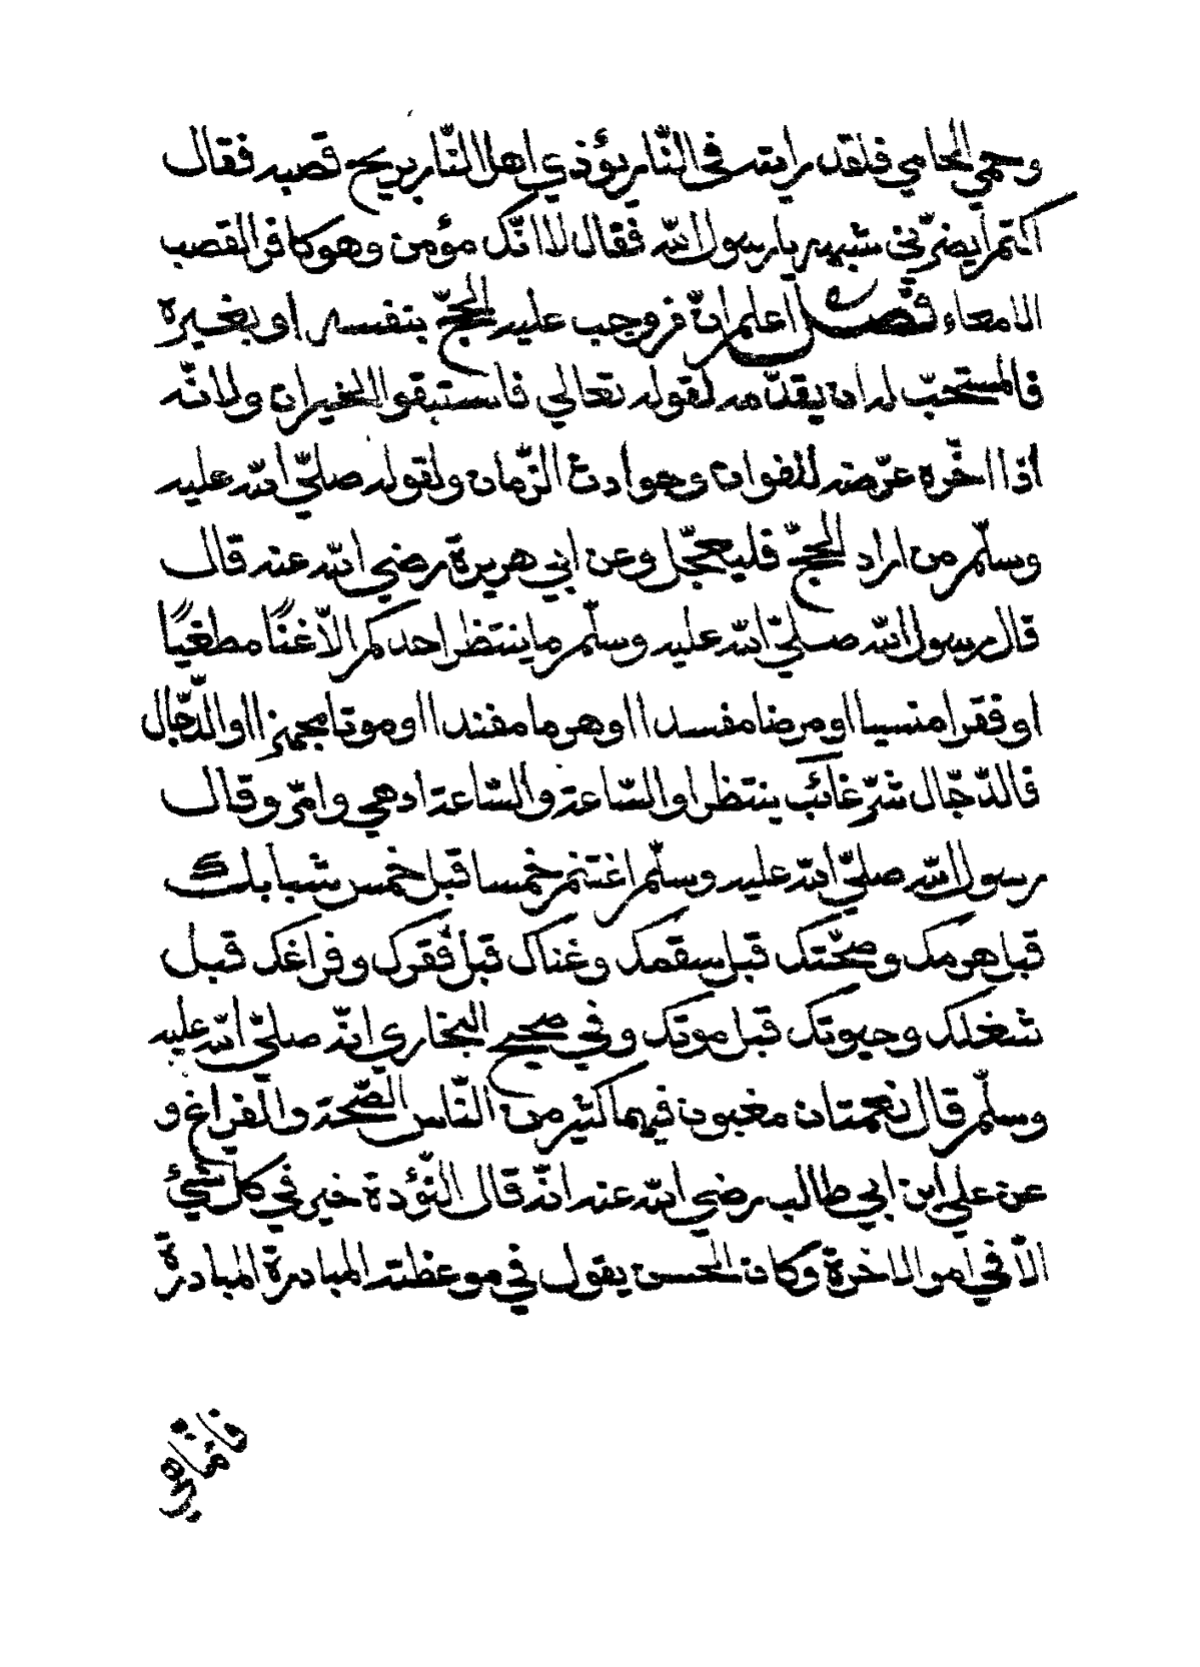 وحمي الحامي فلقد رايته في النّار يؤذي اهل النّار بريح قصبه فقال
اكتم ايضرّني شبهه يا رسول الله فقال لا انّك مؤمن وهو كافر القصب
الامعاء فصل اعلم انّ من وجب عليه الحجّ بنفسه او بغيره
فالمستحبّ له ان يقدّمه لقوله تعالي فاستبقوا الخيرات ولانّه
اذا اخّره عرّضه للفوات وحوادث الزّمان ولقوله صلّي الله عليه
وسلّم من اراد الحجّ فليعجّل وعن ابي هريرة رضي الله عنه قال
قال رسول الله صلّي الله عليه وسلّم ما ينتظر احدكم الّا غنًا مطغيًا
او فقرا منسيا او مرضا مفسدا او هرما مفندا او موتا مجهزا او الدّجّال
فالدّجّال شرّ غائب ينتظر او السّاعة والسّاعة ادهي وامرّ وقال
رسول الله صلّي الله عليه وسلّم اغتنم خمسا قبل خمس شبابك
قبل هرمك وصحّتك قبل سقمك وغناك قبل فقرك وفراغك قبل
شغلك وحيوتك قبل موتك وفي صحيح البخاري انّه صلّي الله عليه
وسلّم قال نعمتان مغبون فيهما كثير من النّاس الصّحة والفراغ و
عن علي ابن ابي طالب رضي الله عنه انّه قال التّؤدة خير في كل شيئ
الّا في امور الاخرة وكان الحسن يقول في موعظته المبادرة المبادرة
فانّما هي